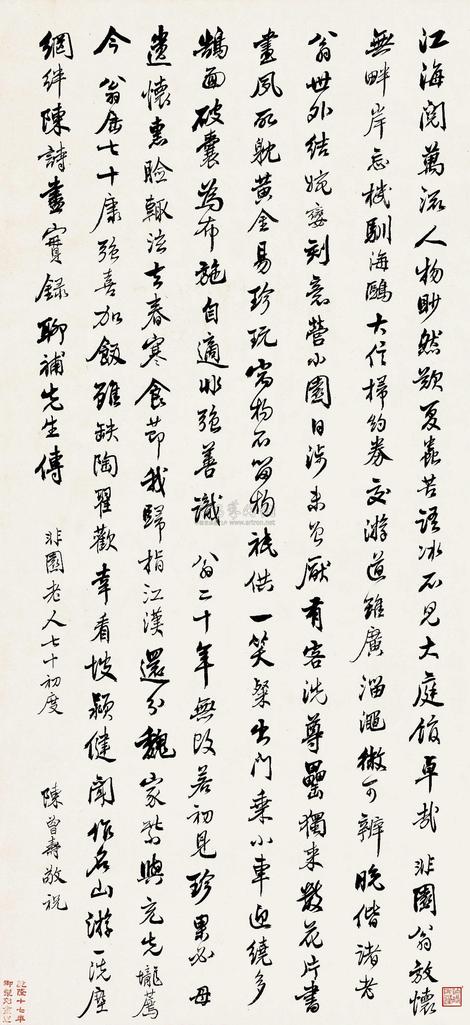 江海閱萬流人物眇然歎夏蟲苦語冰不見大庭館卓哉非園翁放懷
無畔岸忘機馴海鷗大信掃約券交游道雖廣淄澠微可辨晚偕諸老
翁世外結婉孌刻意營小園日涉未曾厭有客洗尊罍獨來散花片書
畫夙所躭黃金易珍玩寓物不留物祇供一笑粲出門乘小車迎繞多
鵠面破囊為布施自適非強善識翁二十年無改若初見珍果必母
遺懷惠臉輒泫去春寒食節我歸指江漢還分魏家紫與充先壠薦
今翁屆七十康強喜加飯雖缺陶翟歡幸看坡潁健聞作名山游一洗塵
網絆陳詩盡實錄聊補先生傳
非園老人七十初度
陳曾壽敬祝
www.artron.net
乾隆十七年